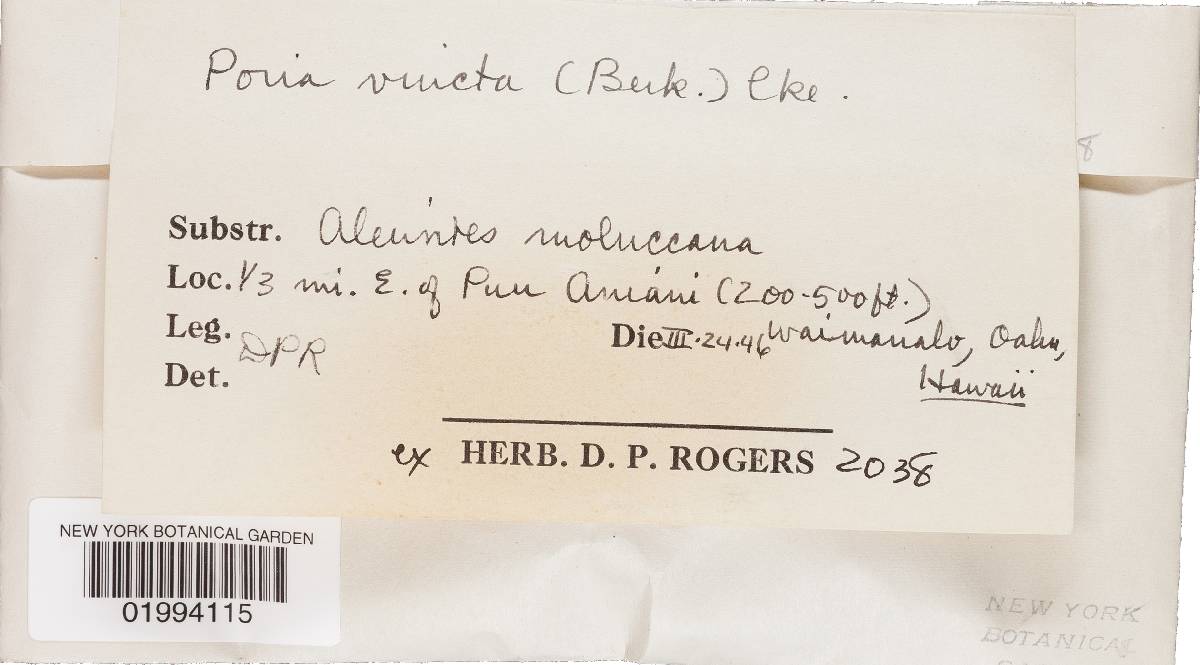 Poria vincta (Berk.) Cke.
8
Substr. Aleurites moluccana
Loc. 1/3 mi. E. of Puu Aniani (200-500ft.)
Leg. DPR
Die III.24.46 Waimanalo, Oahu,
Hawaii
Det.
ex HERB. D. P. ROGERS 2038
NEW YORK BOTANICAL GARDEN
01994115
NEW YORK
BOTANICAL